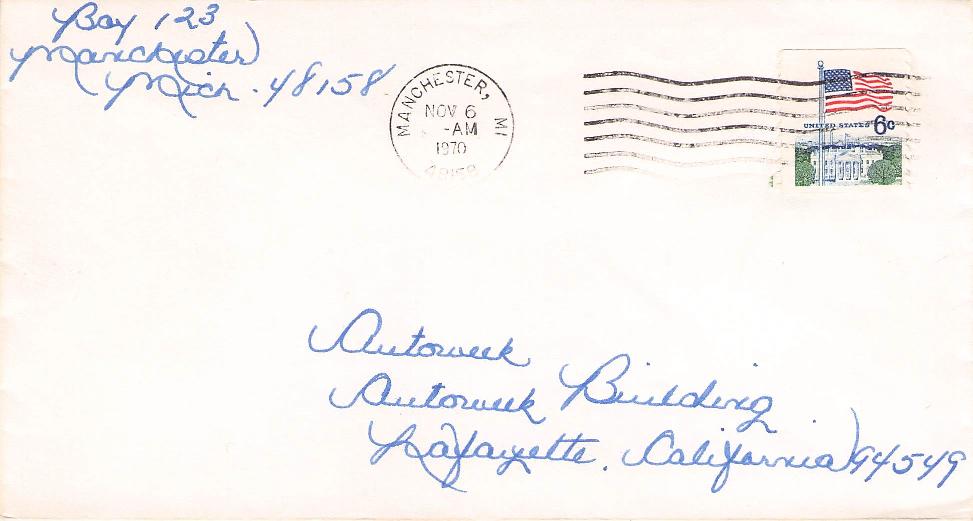 Box 123
Manchester
Mich. 48158
MANCHESTER, MI
NOV 6
-AM
1970
48158
UNITED STATES 6c
Autoweek
Autoweek Building
Lafayette, California 94549